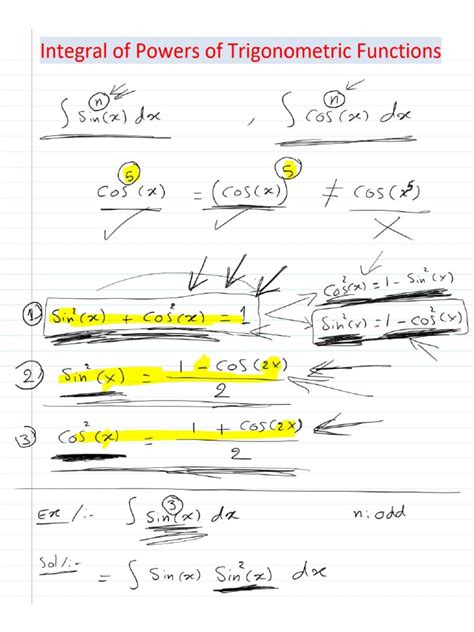 Integral of Powers of Trigonometric Functions
∫ Sin^n(x) dx , ∫ Cos^n(x) dx
Cos^5(x) = (Cos(x))^5 ≠ Cos(x^5)
Cos²(x) = 1 - Sin²(x)
① Sin²(x) + Cos²(x) = 1
Sin²(x) = 1 - Cos²(x)
② Sin²(x) = (1 - Cos(2x))/2
③ Cos²(x) = (1 + Cos(2x))/2
Ex/:- ∫ Sin³(x) dx n: odd
Sol/:- = ∫ Sin(x) Sin²(x) dx